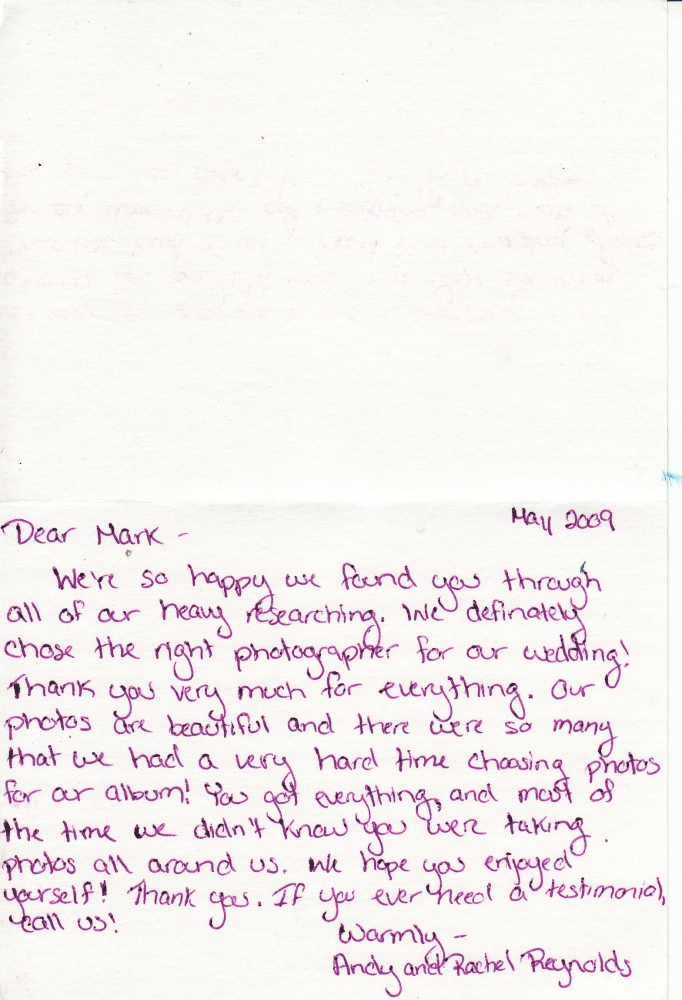 May 2009
Dear Mark -
We're so happy we found you through
all of our heavy researching. We definately
chose the right photographer for our wedding!
Thank you very much for everything. Our
photos are beautiful and there were so many
that we had a very hard time choosing photos
for our album! You got everything, and most of
the time we didn't know you were taking
photos all around us. We hope you enjoyed
yourself! Thank you. If you ever need a testimonial,
call us!
Warmly -
Andy and Rachel Reynolds